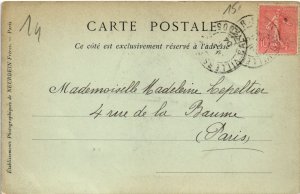 14
15
CARTE POSTALE
Ce côté est exclusivement réservé à l'adresse
Mademoiselle Madeleine Lepeltier
4 rue de la Baume
(Paris)
Etablissements Photographiques de NEURDEIN Frères. - Paris